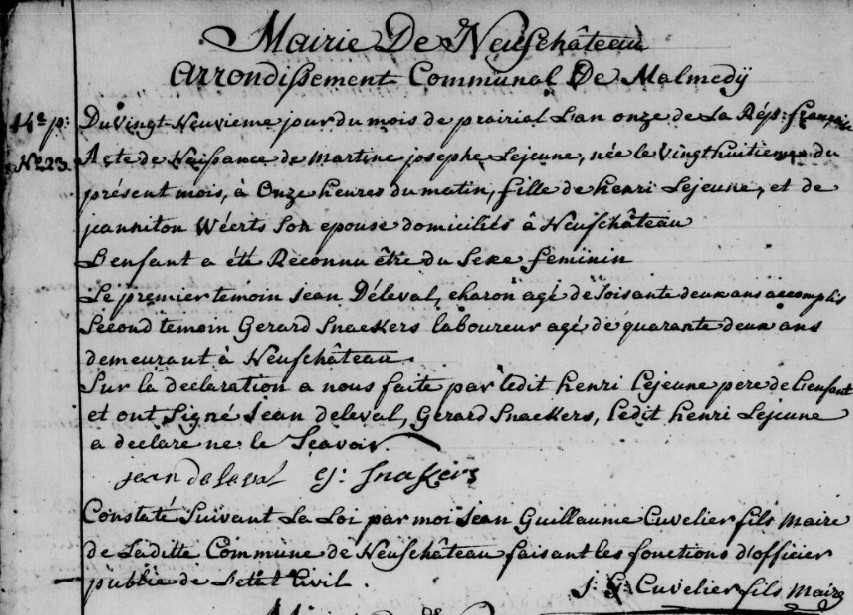 Mairie De Neufchâteau
Arrondissement Communal De Malmedÿ
14e p:
No 23
Du vingt Neuvieme jour du mois de prairial L'an onze de La Rép: française
Acte de Naissance de Martine josephe Lejeune, née le vingt huitieme du
présent mois, à Onze heures du matin, fille de henri Lejeune, et de
jeanniton Wéerts Son epouse domiciliés à Neufchâteau
L'enfant a été Reconnu être du Sexe féminin
Le premier temoin Jean Déleval, charon agé de Soisante deux ans accomplis
Second temoin Gerard Snackers laboureur agé de quarante deux ans
demeurant à Neufchâteau.
Sur la declaration a nous faite par ledit henri Lejeune pere de l'enfant
et ont Signé Jean deleval, Gerard Snackers, ledit henri Lejeune
a declare ne le Scavoir.
jean de leval G: Snakers
Constaté Suivant La Loi par moi Jean Guillaume Cuvelier fils Maire
de Laditte Commune de Neufchâteau faisant les fonctions d'officier
public de l'etat Civil.
J. G. Cuvelier fils Maire